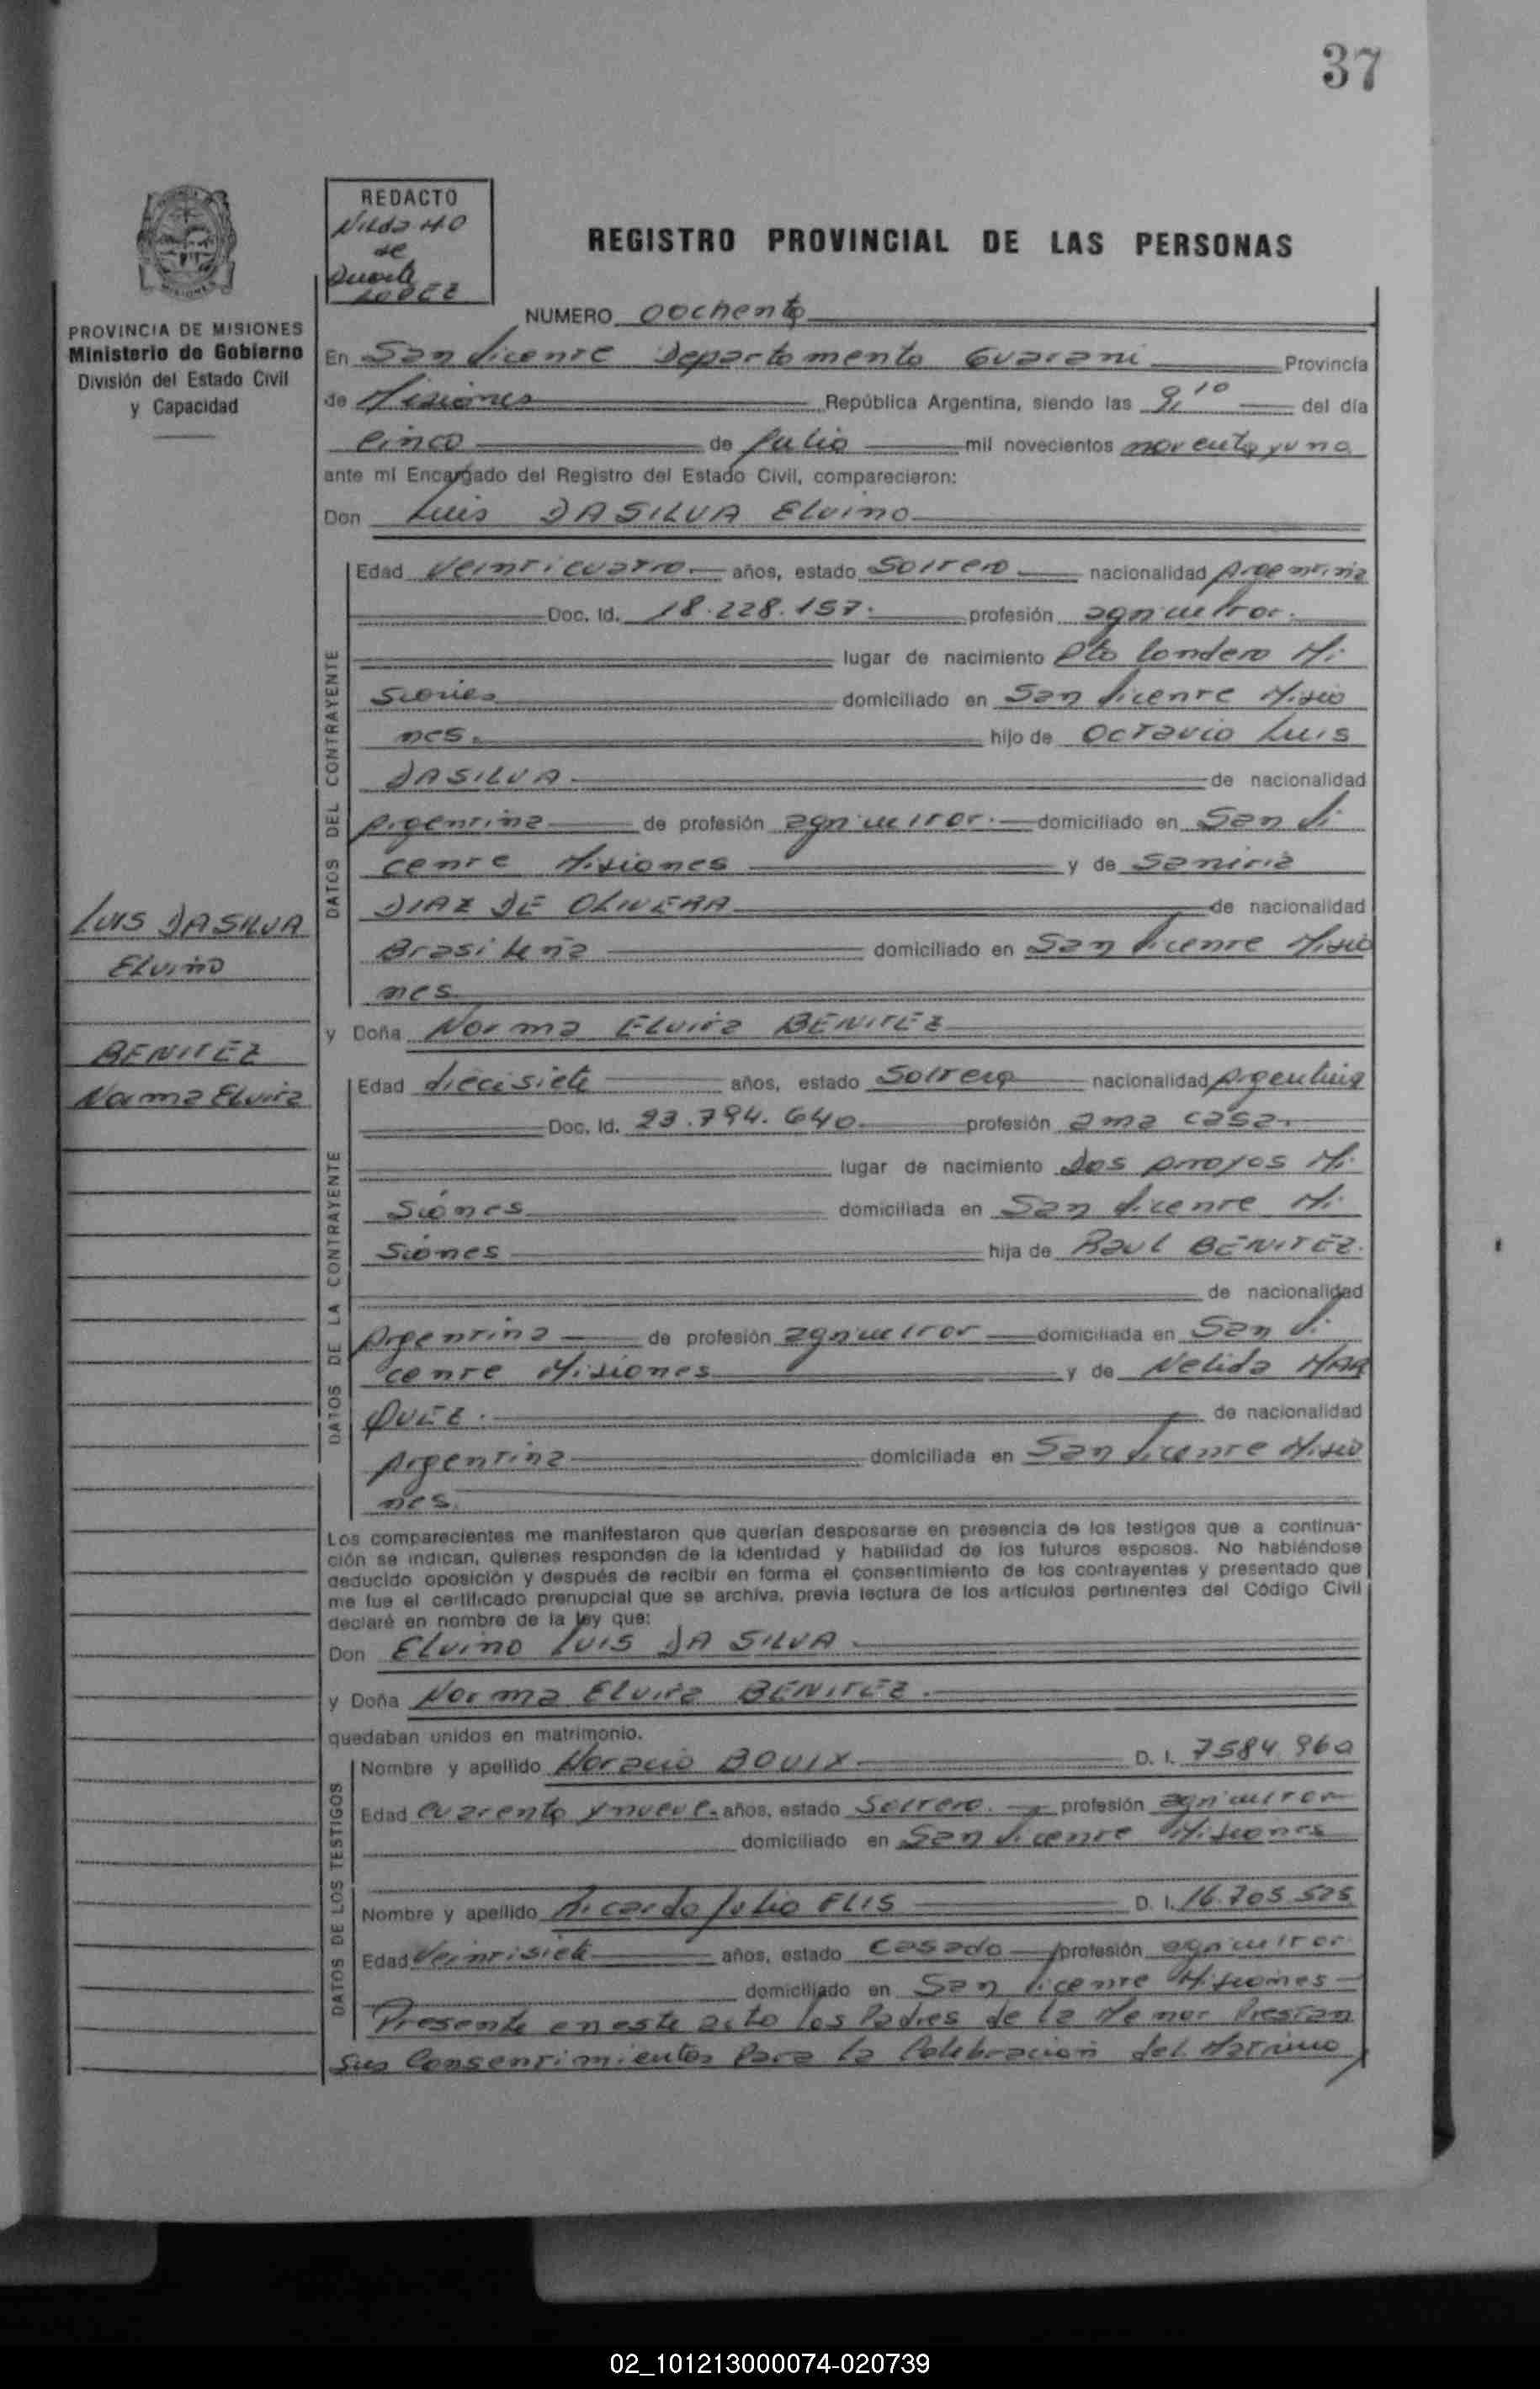 37
REDACTO
Nilda H O
de
Duarte
LOPEZ
REGISTRO PROVINCIAL DE LAS PERSONAS
PROVINCIA DE MISIONES
Ministerio de Gobierno
División del Estado Civil
y Capacidad
NUMERO Oochenta
En San Vicente Departamento Guarani Provincia
de Misiones República Argentina, siendo las 9,10 del día
Cinco de Julio mil novecientos noventa y uno
ante mi Encargado del Registro del Estado Civil, comparecieron:
Don Luis DASILVA Elvino
LUIS DASILVA
ELVINO
BENITEZ
Norma Elvira
DATOS DEL CONTRAYENTE
Edad Veinticuatro años, estado Soltero nacionalidad Argentina
Doc. Id. 18.228.157. profesión agricultor.
lugar de nacimiento Pto Londero Mi
siones domiciliado en San Vicente Misio
nes. hijo de Octavio Luis
DASILVA de nacionalidad
Argentina de profesión agricultor. domiciliado en San Vi
cente Misiones y de
DIAZ DE OLIVERA de nacionalidad
Brasileña domiciliado en San Vicente Misio
nes
y Doña Norma Elvira BENITEZ
DATOS DE LA CONTRAYENTE
Edad diecisiete años, estado Soltera nacionalidad Argentina
Doc. Id. 23.794.640 profesión ama casa.
lugar de nacimiento Dos Arroyos Mi
siones domiciliada en San Vicente Mi
siones hija de Raul BENITEZ.
de nacionalidad
Argentina de profesión agricultor domiciliada en San Vi
cente Misiones y de Nelida MAR
QUEZ. de nacionalidad
Argentina domiciliada en San Vicente Misio
nes.
Los comparecientes me manifestaron que querían desposarse en presencia de los testigos que a continua-
ción se indican, quienes responden de la identidad y habilidad de los futuros esposos. No habiéndose
deducido oposición y después de recibir en forma el consentimiento de los contrayentes y presentado que
me fue el certificado prenupcial que se archiva, previa lectura de los artículos pertinentes del Código Civil
declaré en nombre de la ley que:
Don Elvino LUIS DA SILVA.
y Doña Norma Elvira BENITEZ.
quedaban unidos en matrimonio.
DATOS DE LOS TESTIGOS
Nombre y apellido Horacio BOUIX D. I. 7584 960
Edad Cuarenta y nueve años, estado Soltero. profesión agricultor
domiciliado en San Vicente Misiones
Nombre y apellido Ricardo Julio FLIS D. I. 16.705 525
Edad Veintisiete años, estado Casado profesión agricultor
domiciliado en San Vicente Misiones
Presente en este acto los Padres de la Menor Prestan
sus Consentimientos Para la Celebracion del Matrimo
02_101213000074-020739